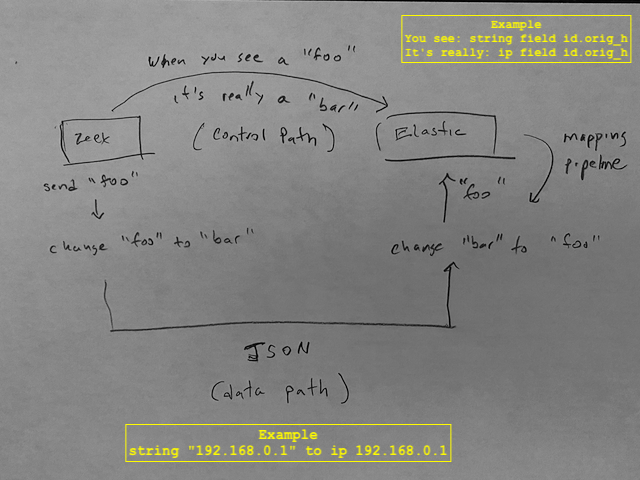 Example
You see: string field id.orig_h
It's really: ip field id.orig_h
When you see a "foo"
it's really a "bar"
Zeek
(Control Path)
Elastic
mapping
pipeline
send "foo"
"foo"
change "foo" to "bar"
change "bar" to "foo"
JSON
(data path)
Example
string "192.168.0.1" to ip 192.168.0.1